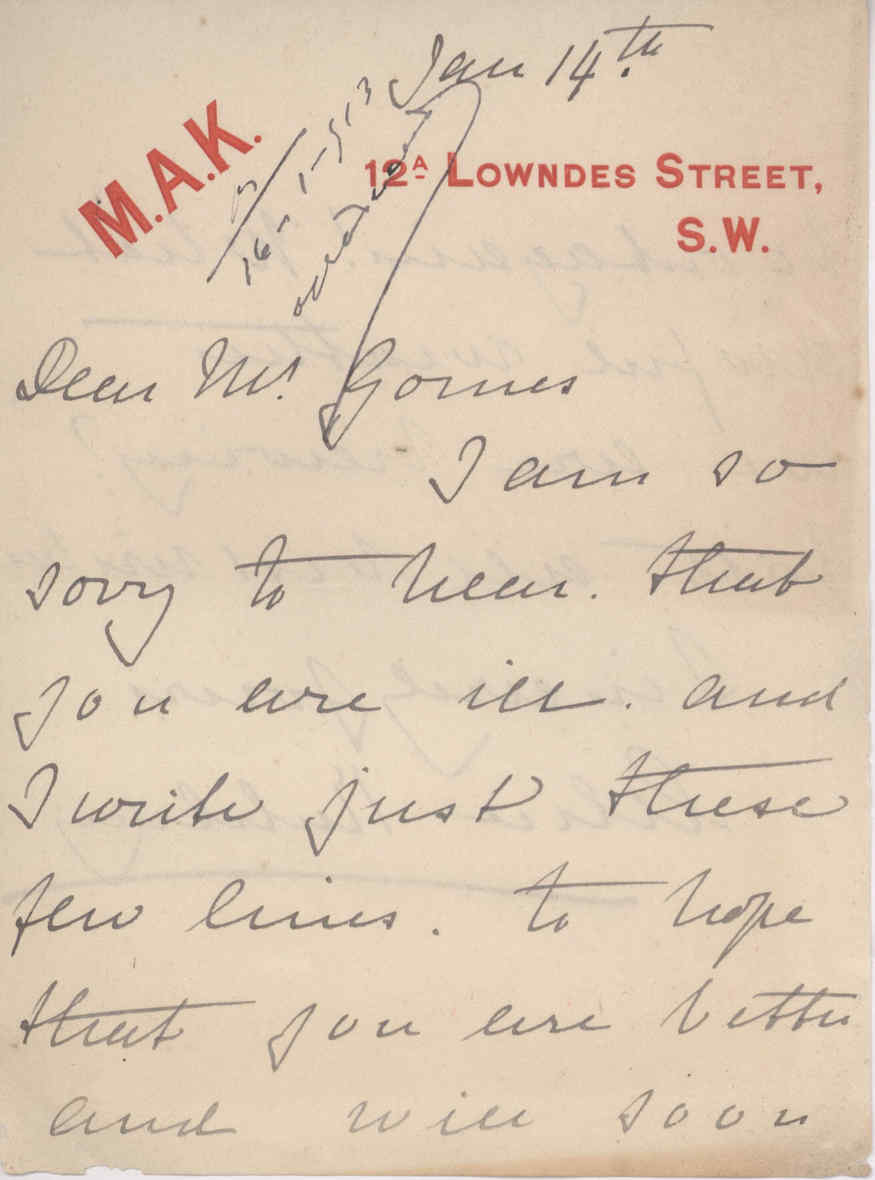 Jan 14th
M.A.K.
16-1-913
12A LOWNDES STREET,
S.W.
Dear Mr. Gomes
I am so
sorry to hear. that
you are ill. and
I write just these
few lines. to hope
that you are better
and will soon